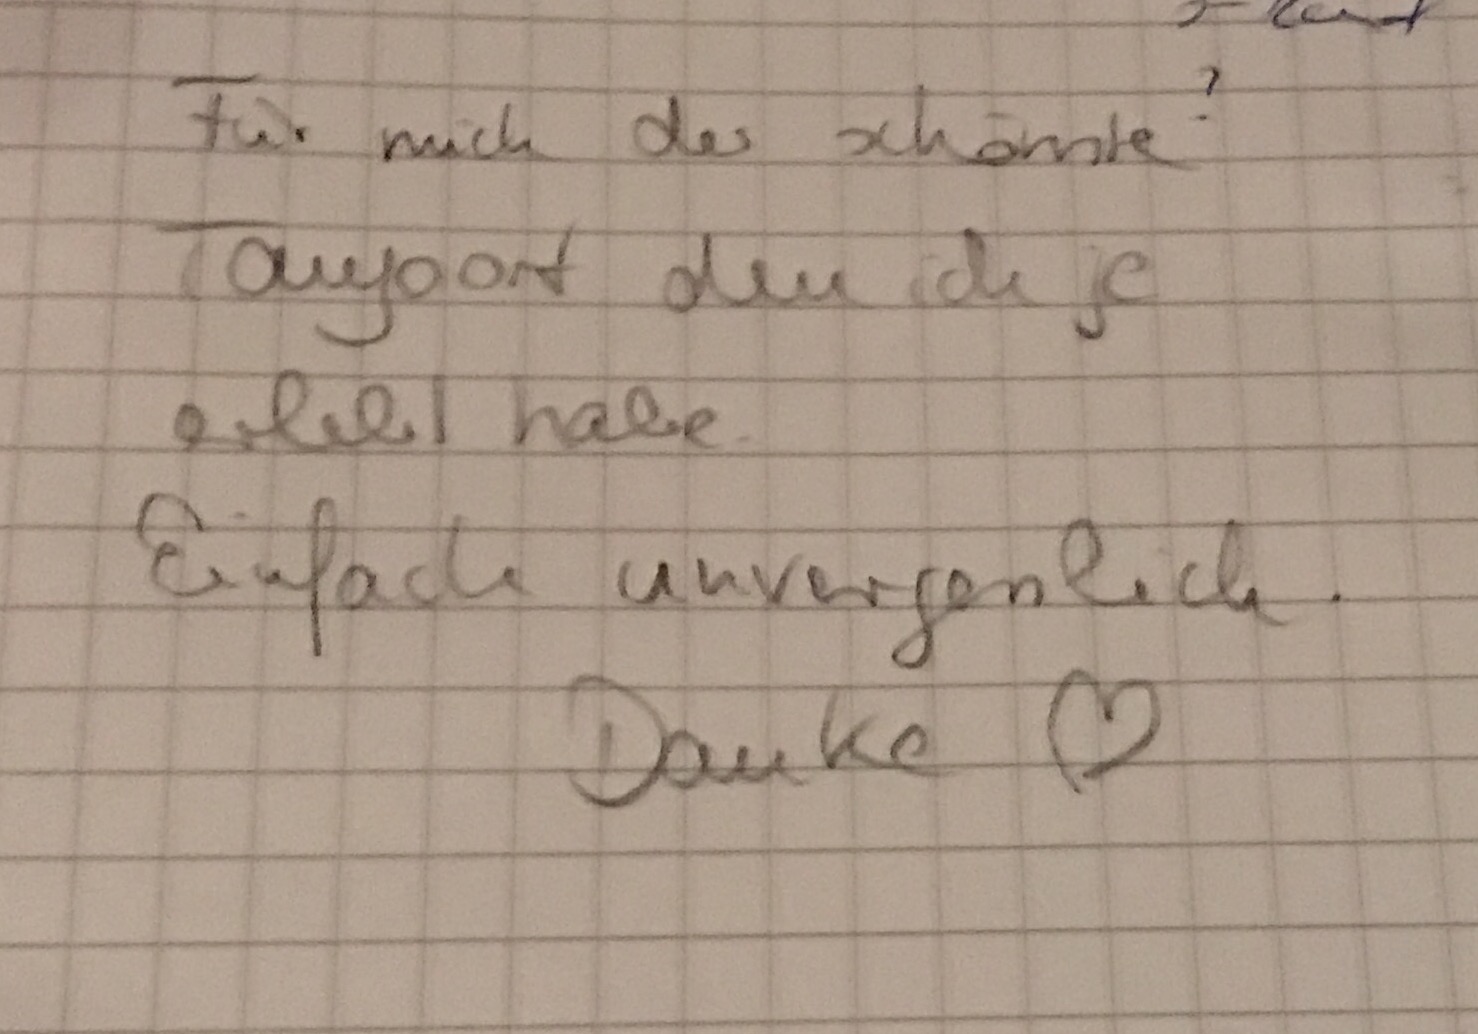 Für mich der schönste?
Tangoort den ich je
erlebt habe.
Einfach unvergesslich.
Danke ♡